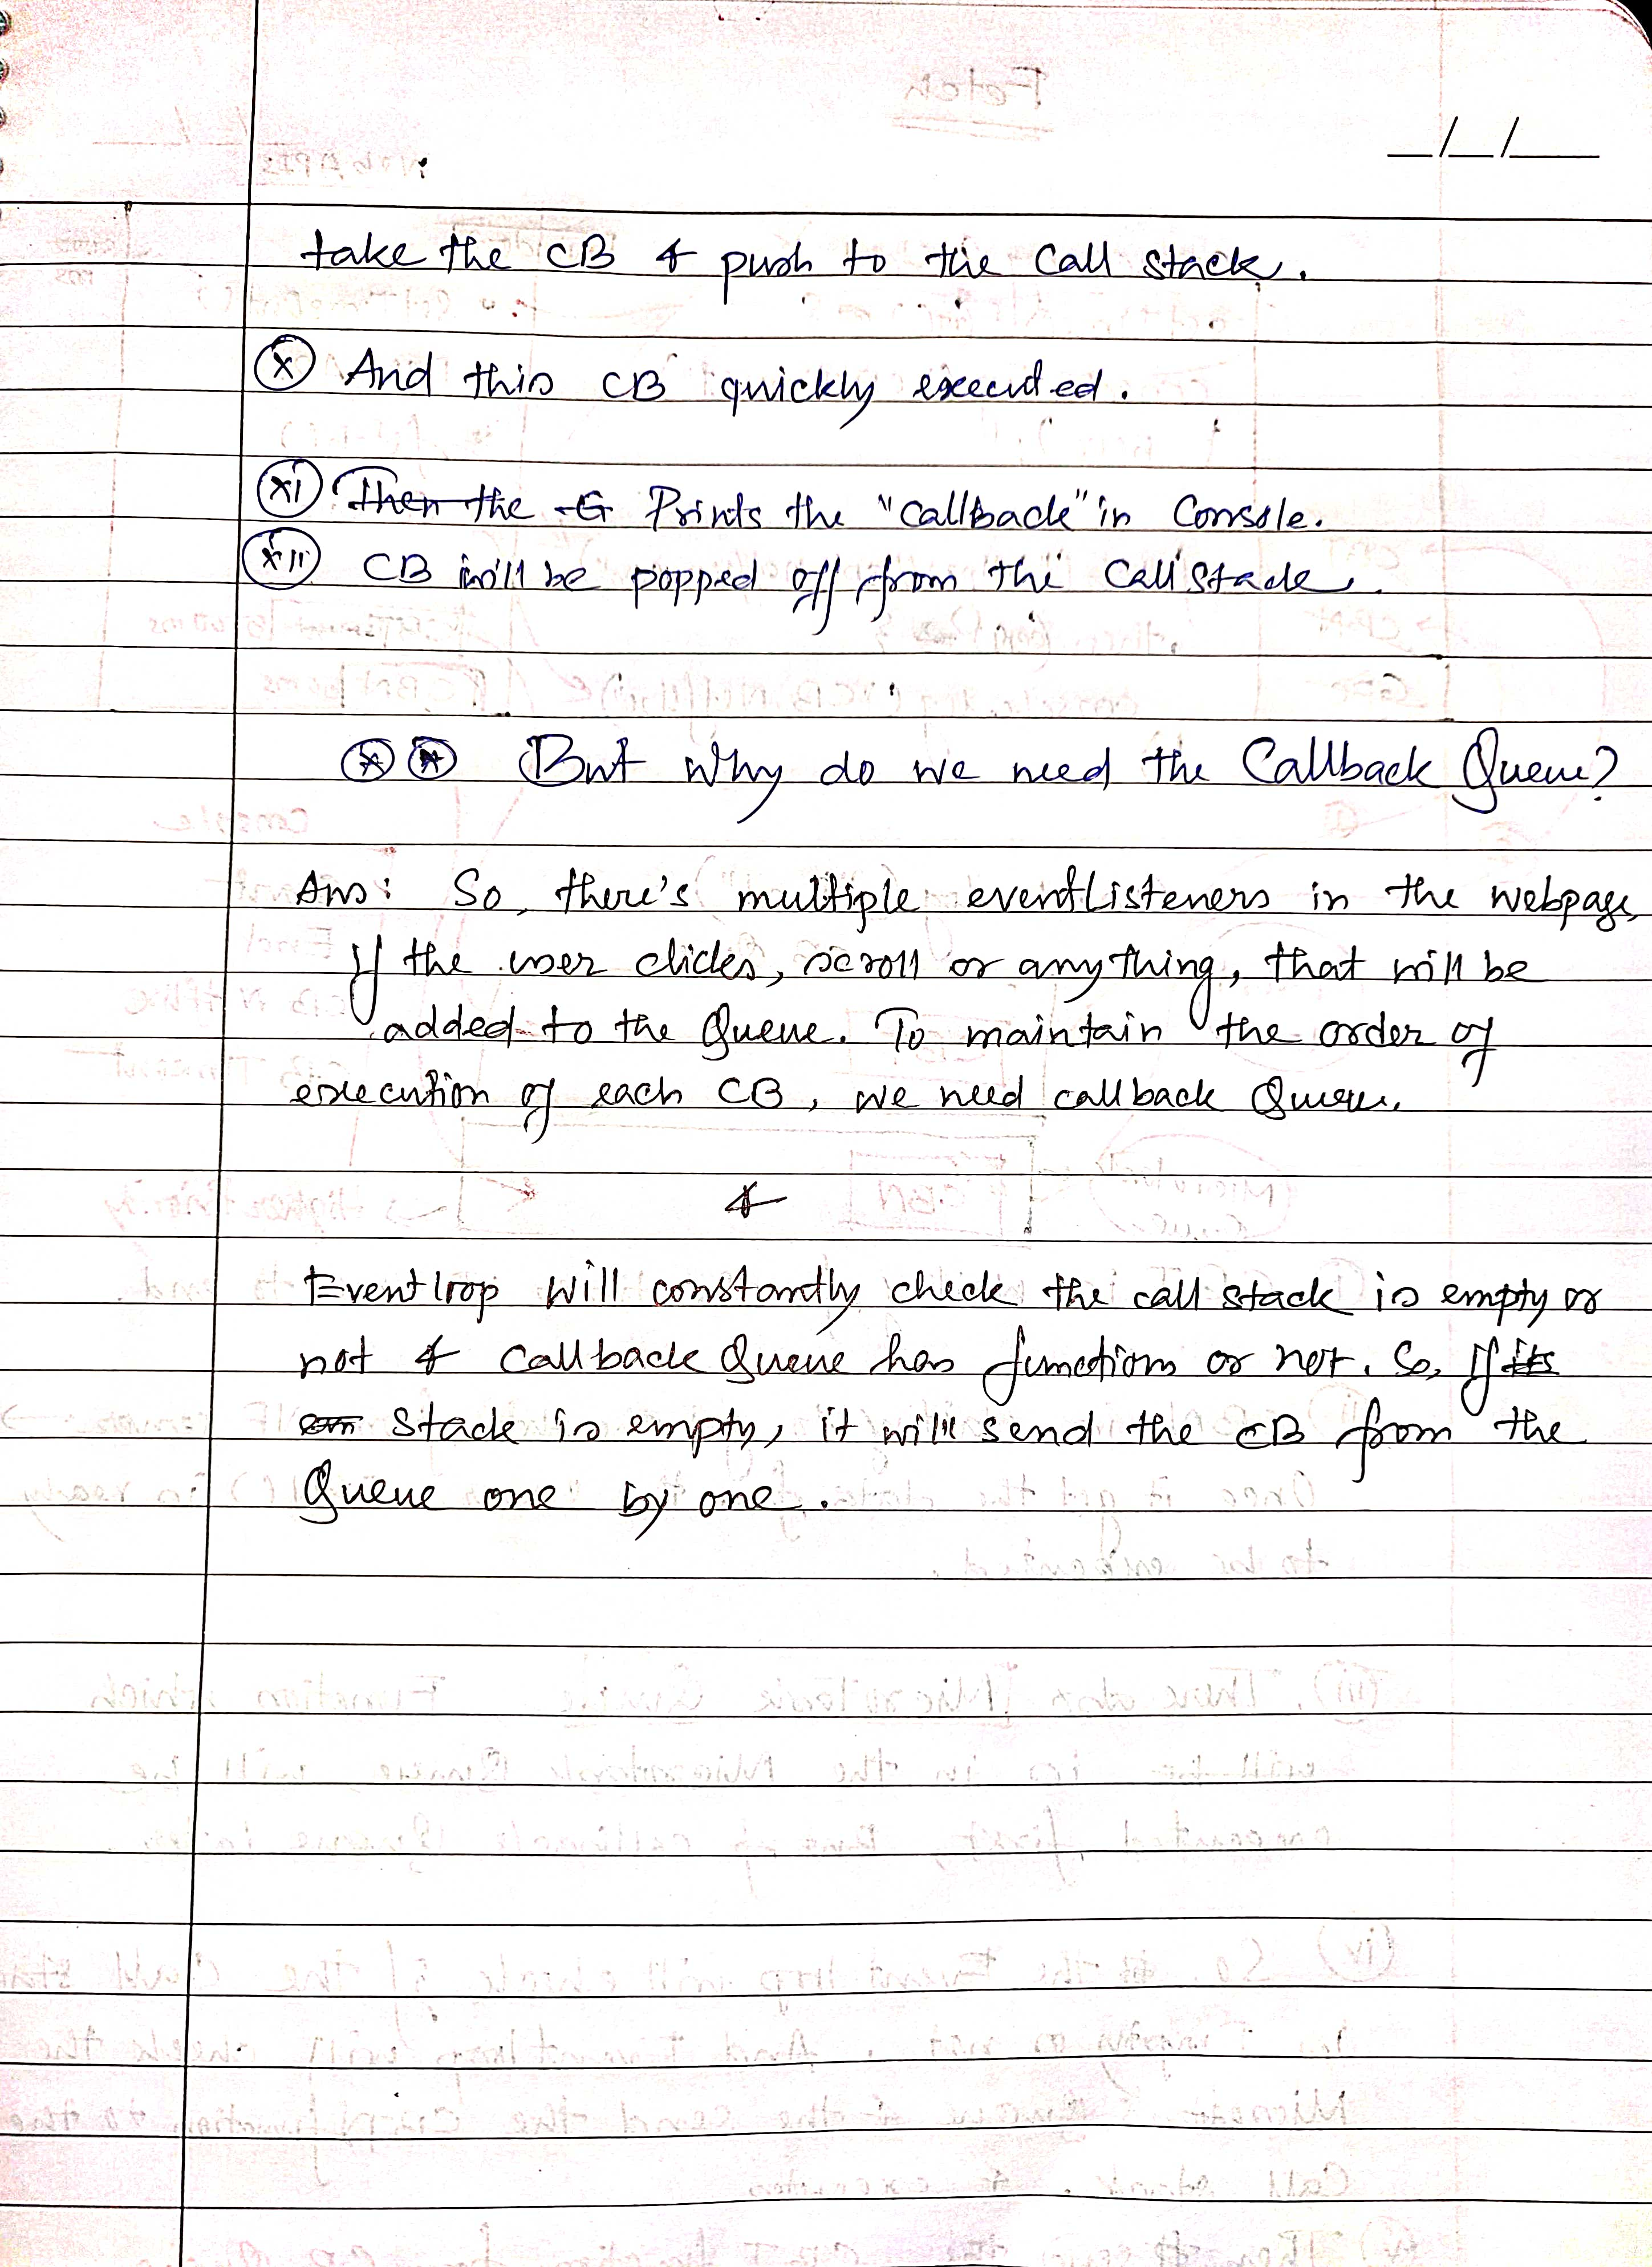 _/_/__
take the CB & push to the Call stack.
(x) And this CB quickly executed.
(xi) Then the G Prints the "Callback" in Console.
(xii) CB will be popped off from the Call Stack.
But Why do we need the Callback Queue?
Ans: So, there's multiple eventListeners in the webpage,
If the user clicks, scroll or anything, that will be
added to the Queue. To maintain the order of
execution of each CB, we need callback Queue.
&
Event loop will constantly check the call stack is empty or
not & Callback Queue has functions or not. So, If its
Stack is empty, it will send the CB from the
Queue one by one.